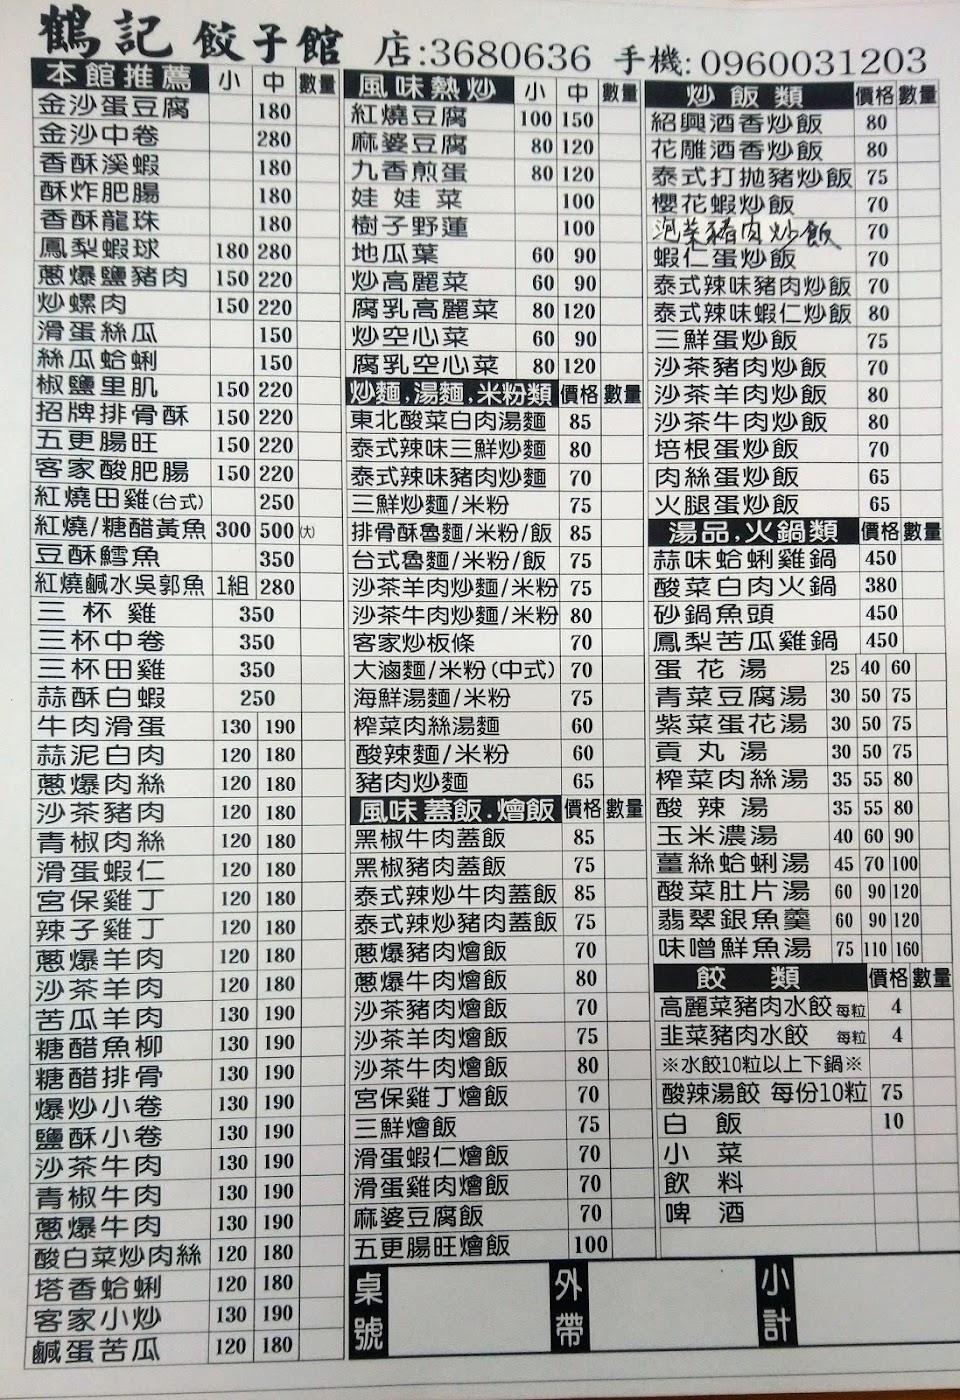 鶴記 餃子館 店:3680636 手機:0960031203
本館推薦 小 中 數量
金沙蛋豆腐 180
金沙中卷 280
香酥溪蝦 180
酥炸肥腸 180
香酥龍珠 180
鳳梨蝦球 180 280
蔥爆鹽豬肉 150 220
炒螺肉 150 220
滑蛋絲瓜 150
絲瓜蛤蜊 150
椒鹽里肌 150 220
招牌排骨酥 150 220
五更腸旺 150 220
客家酸肥腸 150 220
紅燒田雞(台式) 250
紅燒/糖醋黃魚 300 500 (大)
豆酥鱈魚 350
紅燒鹹水吳郭魚 1組 280
三杯雞 350
三杯中卷 350
三杯田雞 350
蒜酥白蝦 250
牛肉滑蛋 130 190
蒜泥白肉 120 180
蔥爆肉絲 120 180
沙茶豬肉 120 180
青椒肉絲 120 180
滑蛋蝦仁 120 180
宮保雞丁 120 180
辣子雞丁 120 180
蔥爆羊肉 120 180
沙茶羊肉 120 180
苦瓜羊肉 130 190
糖醋魚柳 130 190
糖醋排骨 130 190
爆炒小卷 130 190
鹽酥小卷 130 190
沙茶牛肉 130 190
青椒牛肉 130 190
蔥爆牛肉 130 190
酸白菜炒肉絲 120 180
塔香蛤蜊 120 180
客家小炒 130 190
鹹蛋苦瓜 120 180
風味熱炒 小 中 數量
紅燒豆腐 100 150
麻婆豆腐 80 120
九香煎蛋 80 120
娃娃菜 100
樹子野蓮 100
地瓜葉 60 90
炒高麗菜 60 90
腐乳高麗菜 80 120
炒空心菜 60 90
腐乳空心菜 80 120
炒麵,湯麵,米粉類 價格 數量
東北酸菜白肉湯麵 85
泰式辣味三鮮炒麵 80
泰式辣味豬肉炒麵 70
三鮮炒麵/米粉 75
排骨酥魯麵/米粉/飯 85
台式魯麵/米粉/飯 75
沙茶羊肉炒麵/米粉 75
沙茶牛肉炒麵/米粉 80
客家炒板條 70
大滷麵/米粉(中式) 70
海鮮湯麵/米粉 75
榨菜肉絲湯麵 60
酸辣麵/米粉 60
豬肉炒麵 65
風味蓋飯.燴飯 價格 數量
黑椒牛肉蓋飯 85
黑椒豬肉蓋飯 75
泰式辣炒牛肉蓋飯 85
泰式辣炒豬肉蓋飯 75
蔥爆豬肉燴飯 70
蔥爆牛肉燴飯 80
沙茶豬肉燴飯 70
沙茶羊肉燴飯 75
沙茶牛肉燴飯 80
宮保雞丁燴飯 70
三鮮燴飯 75
滑蛋蝦仁燴飯 70
滑蛋雞肉燴飯 70
麻婆豆腐飯 70
五更腸旺燴飯 100
炒飯類 價格 數量
紹興酒香炒飯 80
花雕酒香炒飯 80
泰式打拋豬炒飯 75
櫻花蝦炒飯 70
泡菜豬肉炒飯 70
蝦仁蛋炒飯 70
泰式辣味豬肉炒飯 70
泰式辣味蝦仁炒飯 80
三鮮蛋炒飯 75
沙茶豬肉炒飯 70
沙茶羊肉炒飯 80
沙茶牛肉炒飯 80
培根蛋炒飯 70
肉絲蛋炒飯 65
火腿蛋炒飯 65
湯品,火鍋類 價格 數量
蒜味蛤蜊雞鍋 450
酸菜白肉火鍋 380
砂鍋魚頭 450
鳳梨苦瓜雞鍋 450
蛋花湯 25 40 60
青菜豆腐湯 30 50 75
紫菜蛋花湯 30 50 75
貢丸湯 30 50 75
榨菜肉絲湯 35 55 80
酸辣湯 35 55 80
玉米濃湯 40 60 90
薑絲蛤蜊湯 45 70 100
酸菜肚片湯 60 90 120
翡翠銀魚羹 60 90 120
味噌鮮魚湯 75 110 160
餃類 價格 數量
高麗菜豬肉水餃 每粒 4
韭菜豬肉水餃 每粒 4
※水餃10粒以上下鍋※
酸辣湯餃 每份10粒 75
白飯 10
小菜
飲料
啤酒
桌號 外帶 小計